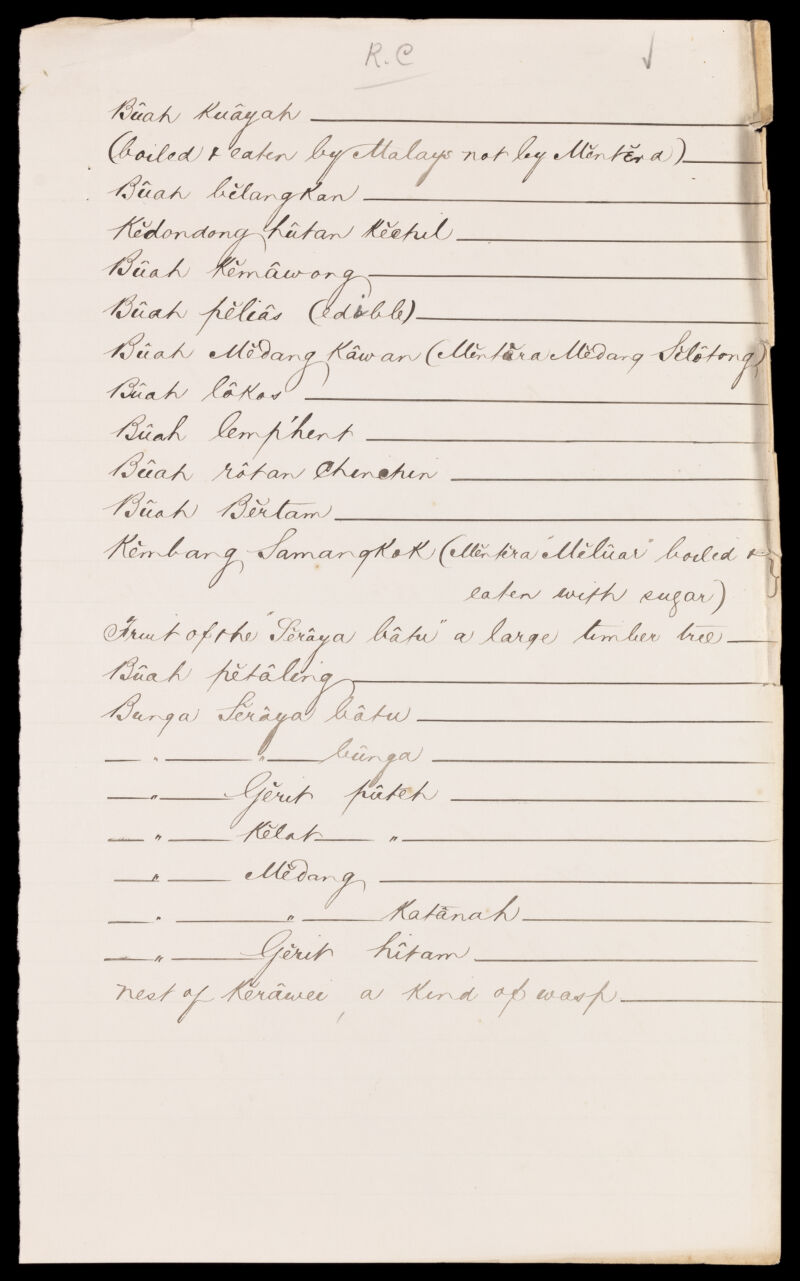 R.C
Bûah Kuâyah
(boiled & eaten by Malays not by Mĕntĕra)
Bûah bĕlangkan
Kĕdondong hûtan Kĕchil
Bûah Kĕmâwong
Bûah pĕliâs (edible)
Bûah Mĕdang Kâwan (Mĕntĕra Mĕdang Sĕlôtong)
Bûah lôkos
Bûah
Bûah rôtan Chinchin
Bûah Bĕrtam
Kĕmbang Samangkok (Mĕntĕra "Mĕlûar" boiled &
eaten with sugar)
Fruit of the "Sĕrâya bâtu" a large timber tree
Bûah pĕtâling
Bunga Sĕrâya bâtu
— " — " — bûnga
— " — Gĕrit pûteh
— " — Kĕlat — " —
— " — Mĕdang
— " — " — Katânah
— " — Gĕrit hîtam
nest of Kĕrâwei, a kind of wasp